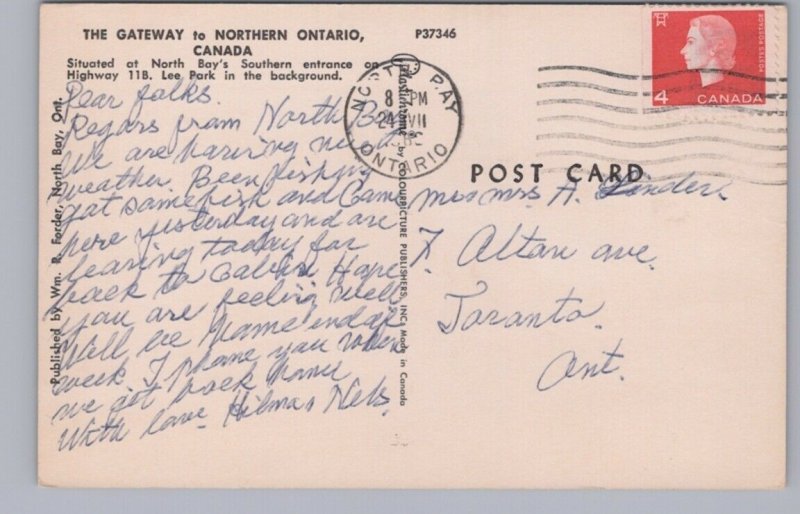 THE GATEWAY to NORTHERN ONTARIO,
CANADA
Situated at North Bay's Southern entrance on
Highway 11B. Lee Park in the background.
P37346
Published by Wm. R. Forder, North Bay, Ont.
Dear folks.
Regars from North Bay
We are having nice
weather. Been fishing
got some fish and Came
here yesterday and are
leaving today for
back to Cabin Hope
you are feeling well.
Will be home end of
week. I phone you when
we got back home
With love. Hilma & Nels.
Plastichrome by COLOURPICTURE PUBLISHERS, INC. Made in Canada
NORTH BAY
8 PM
24 VII
ONTARIO
POSTES POSTAGE
4 CANADA
POST CARD
Mr & Mrs A. Linder
7 Altan ave.
Toronto.
Ont.